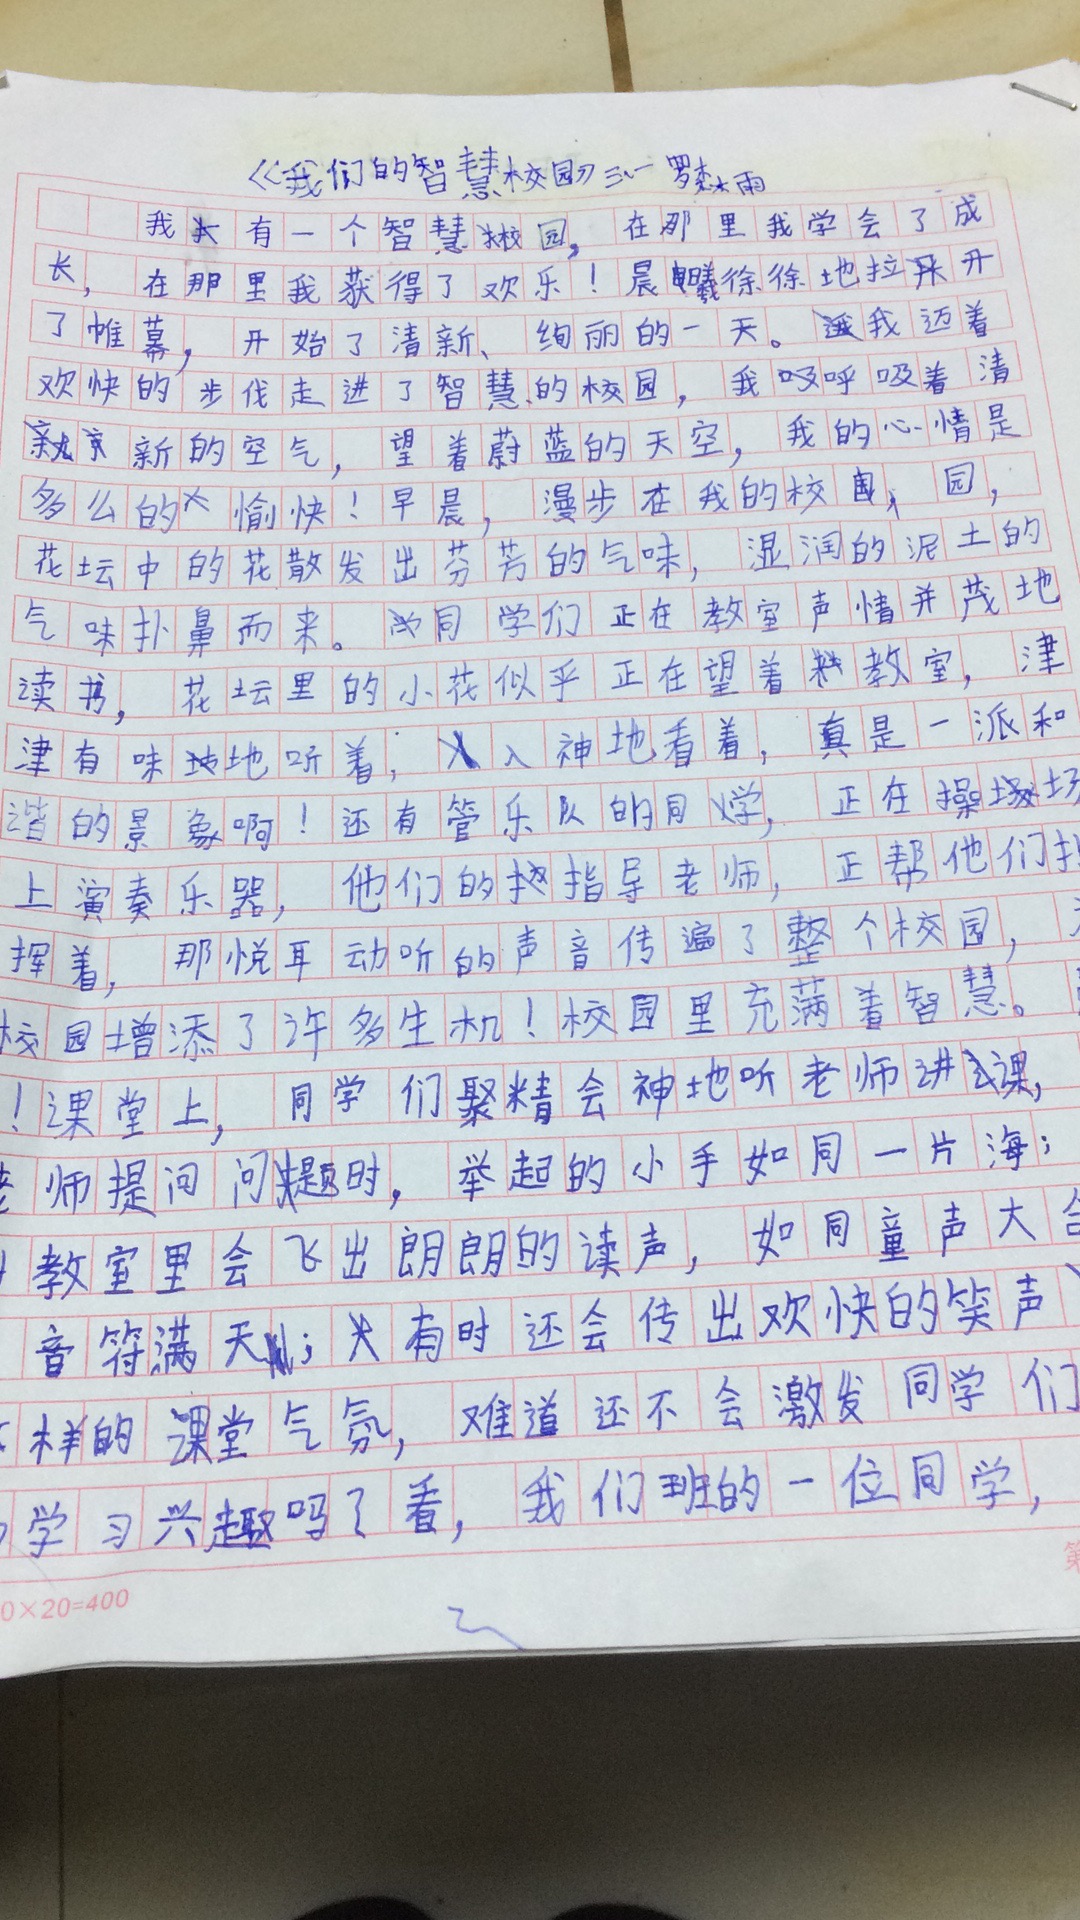 《我们的智慧校园》三、一 罗森雨
我有一个智慧校园，在那里我学会了成
长，在那里我获得了欢乐！晨曦徐徐地拉开
了帷幕，开始了清新、绚丽的一天。我迈着
欢快的步伐走进了智慧的校园，我呼吸着清
新的空气，望着蔚蓝的天空，我的心情是
多么的愉快！早晨，漫步在我的校园，
花坛中的花散发出芬芳的气味，湿润的泥土的
气味扑鼻而来。同学们正在教室声情并茂地
读书，花坛里的小花似乎正在望着教室，津
津有味地听着，入神地看着，真是一派和
谐的景象啊！还有管乐队的同学，正在操场
上演奏乐器，他们的指导老师，正帮他们指
挥着，那悦耳动听的声音传遍了整个校园，
校园增添了许多生机！校园里充满着智慧。
！课堂上，同学们聚精会神地听老师讲课，
老师提问问题时，举起的小手如同一片海；
教室里会飞出朗朗的读声，如同童声大合
音符满天；有时还会传出欢快的笑声
样的课堂气氛，难道还不会激发同学们
学习兴趣吗了看，我们班的一位同学，
0×20=400
第